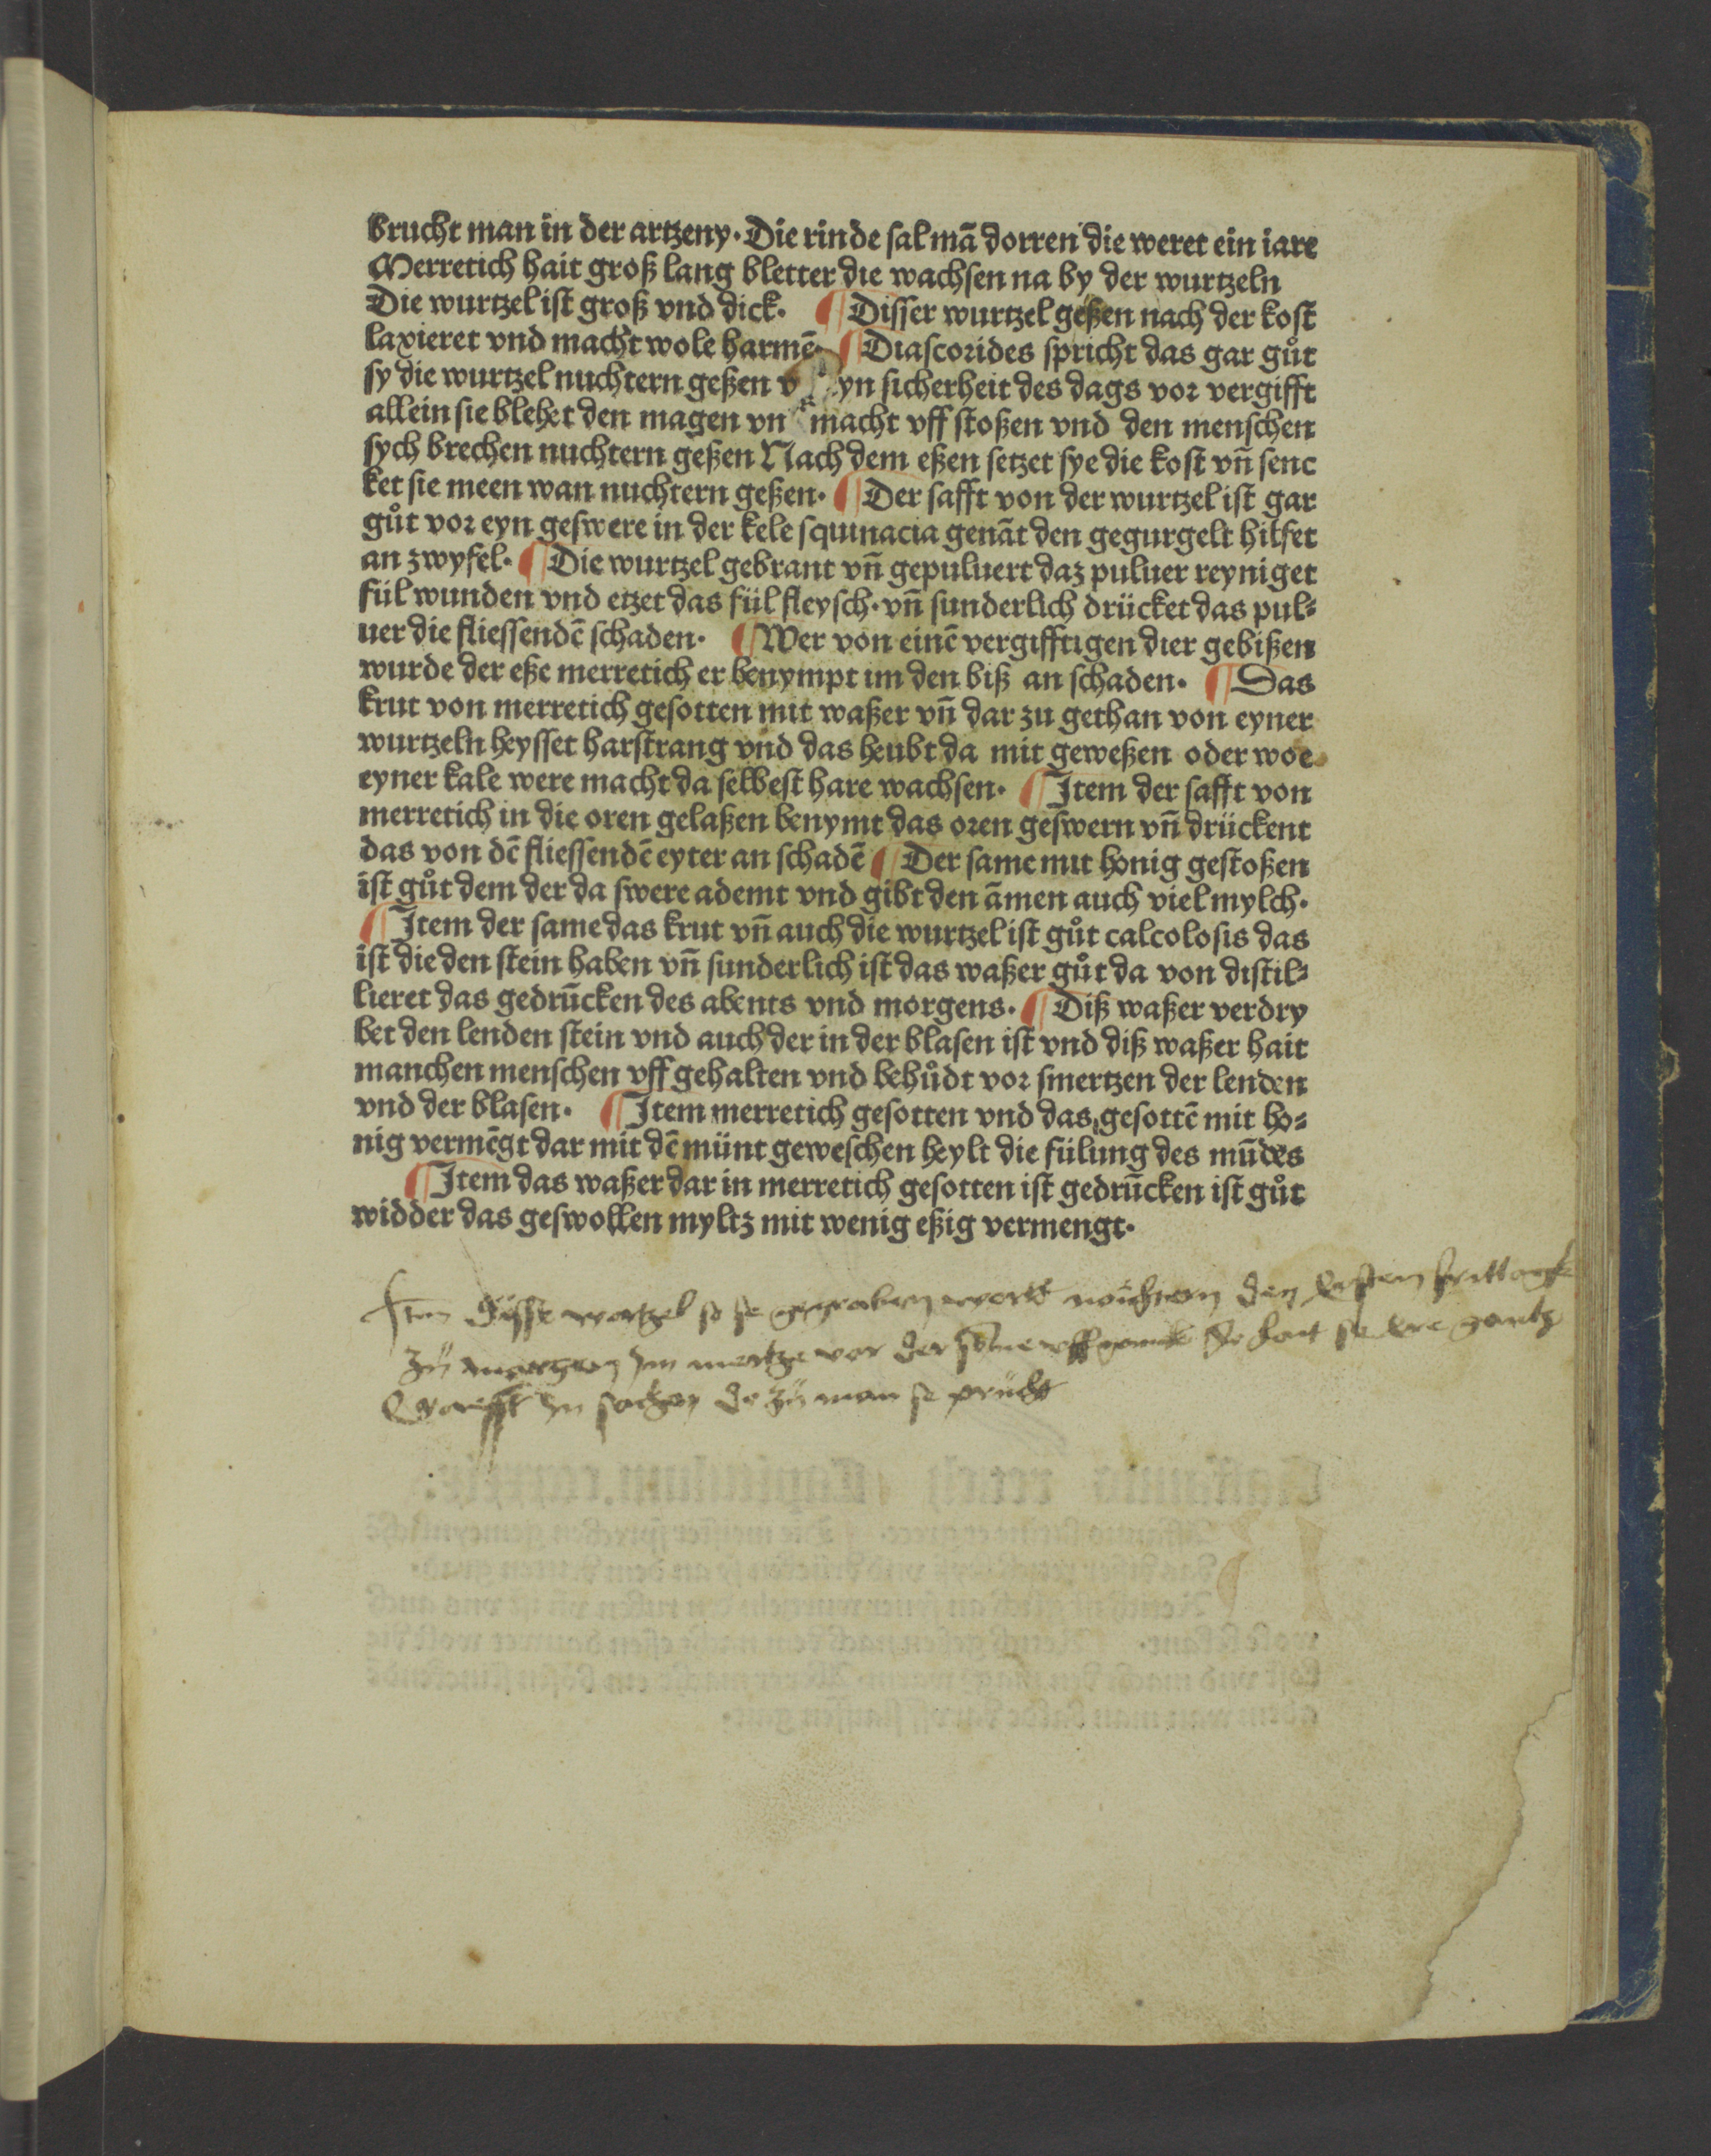 brucht man in der artzeny. Die rinde sal mā dorren die weret ein iare
Merretich hait groß lang bletter die wachsen na by der wurtzeln
Die wurtzel ist groß vnd dick. ¶ Disser wurtzel geßen nach der kost
laxieret vnd macht wole harmē. ¶ Diascorides spricht das gar gůt
sy die wurtzel nuchtern geßen v yn sicherheit des dags vor vergifft
allein sie blehet den magen vn macht vff stoßen vnd den menschen
sych brechen nuchtern geßen Nach dem eßen setzet sye die kost vn̄ senc
ket sie meen wan nuchtern geßen. ¶ Der safft von der wurtzel ist gar
gůt vor eyn geswere in der kele squinacia genāt den gegurgelt hilfet
an zwyfel. ¶ Die wurtzel gebrant vn̄ gepuluert daz puluer reyniget
fül wunden vnd etzet das fül fleysch. vn̄ sunderlich drücket das pul⸗
uer die fliessendē schaden. ¶ Wer von einē vergifftigen dier gebißen
wurde der eße merretich er benympt im den biß an schaden. ¶ Das
krut von merretich gesotten mit waßer vn̄ dar zu gethan von eyner
wurtzeln heysset harstrang vnd das heubt da mit geweßen oder woe
eyner kale were macht da selbest hare wachsen. ¶ Item der safft von
merretich in die oren gelaßen benymt das oren geswern vn̄ drückent
das von dē fliessendē eyter an schadē ¶ Der same mit honig gestoßen
ist gůt dem der da swere ademt vnd gibt den āmen auch viel mylch.
¶ Item der same das krut vn̄ auch die wurtzel ist gůt calcolosis das
ist die den stein haben vn̄ sunderlich ist das waßer gůt da von distil⸗
lieret das gedrūcken des abents vnd morgens. ¶ Diß waßer verdry
bet den lenden stein vnd auch der in der blasen ist vnd diß waßer hait
manchen menschen vff gehalten vnd behůdt vor smertzen der lenden
vnd der blasen. ¶ Item merretich gesotten vnd das gesottē mit ho⸗
nig vermēgt dar mit dē münt geweschen heylt die fülung des mūdes
¶ Item das waßer dar in merretich gesotten ist gedrūcken ist gůt
widder das geswollen myltz mit wenig eßig vermengt.
Item disse wortzel so se gegraben wortt nüchtern den ersten frittagk
zü morgen Im mertze vor der sonne vffganck so hait se ere gantz
krafft In sachen do zü man se prücht